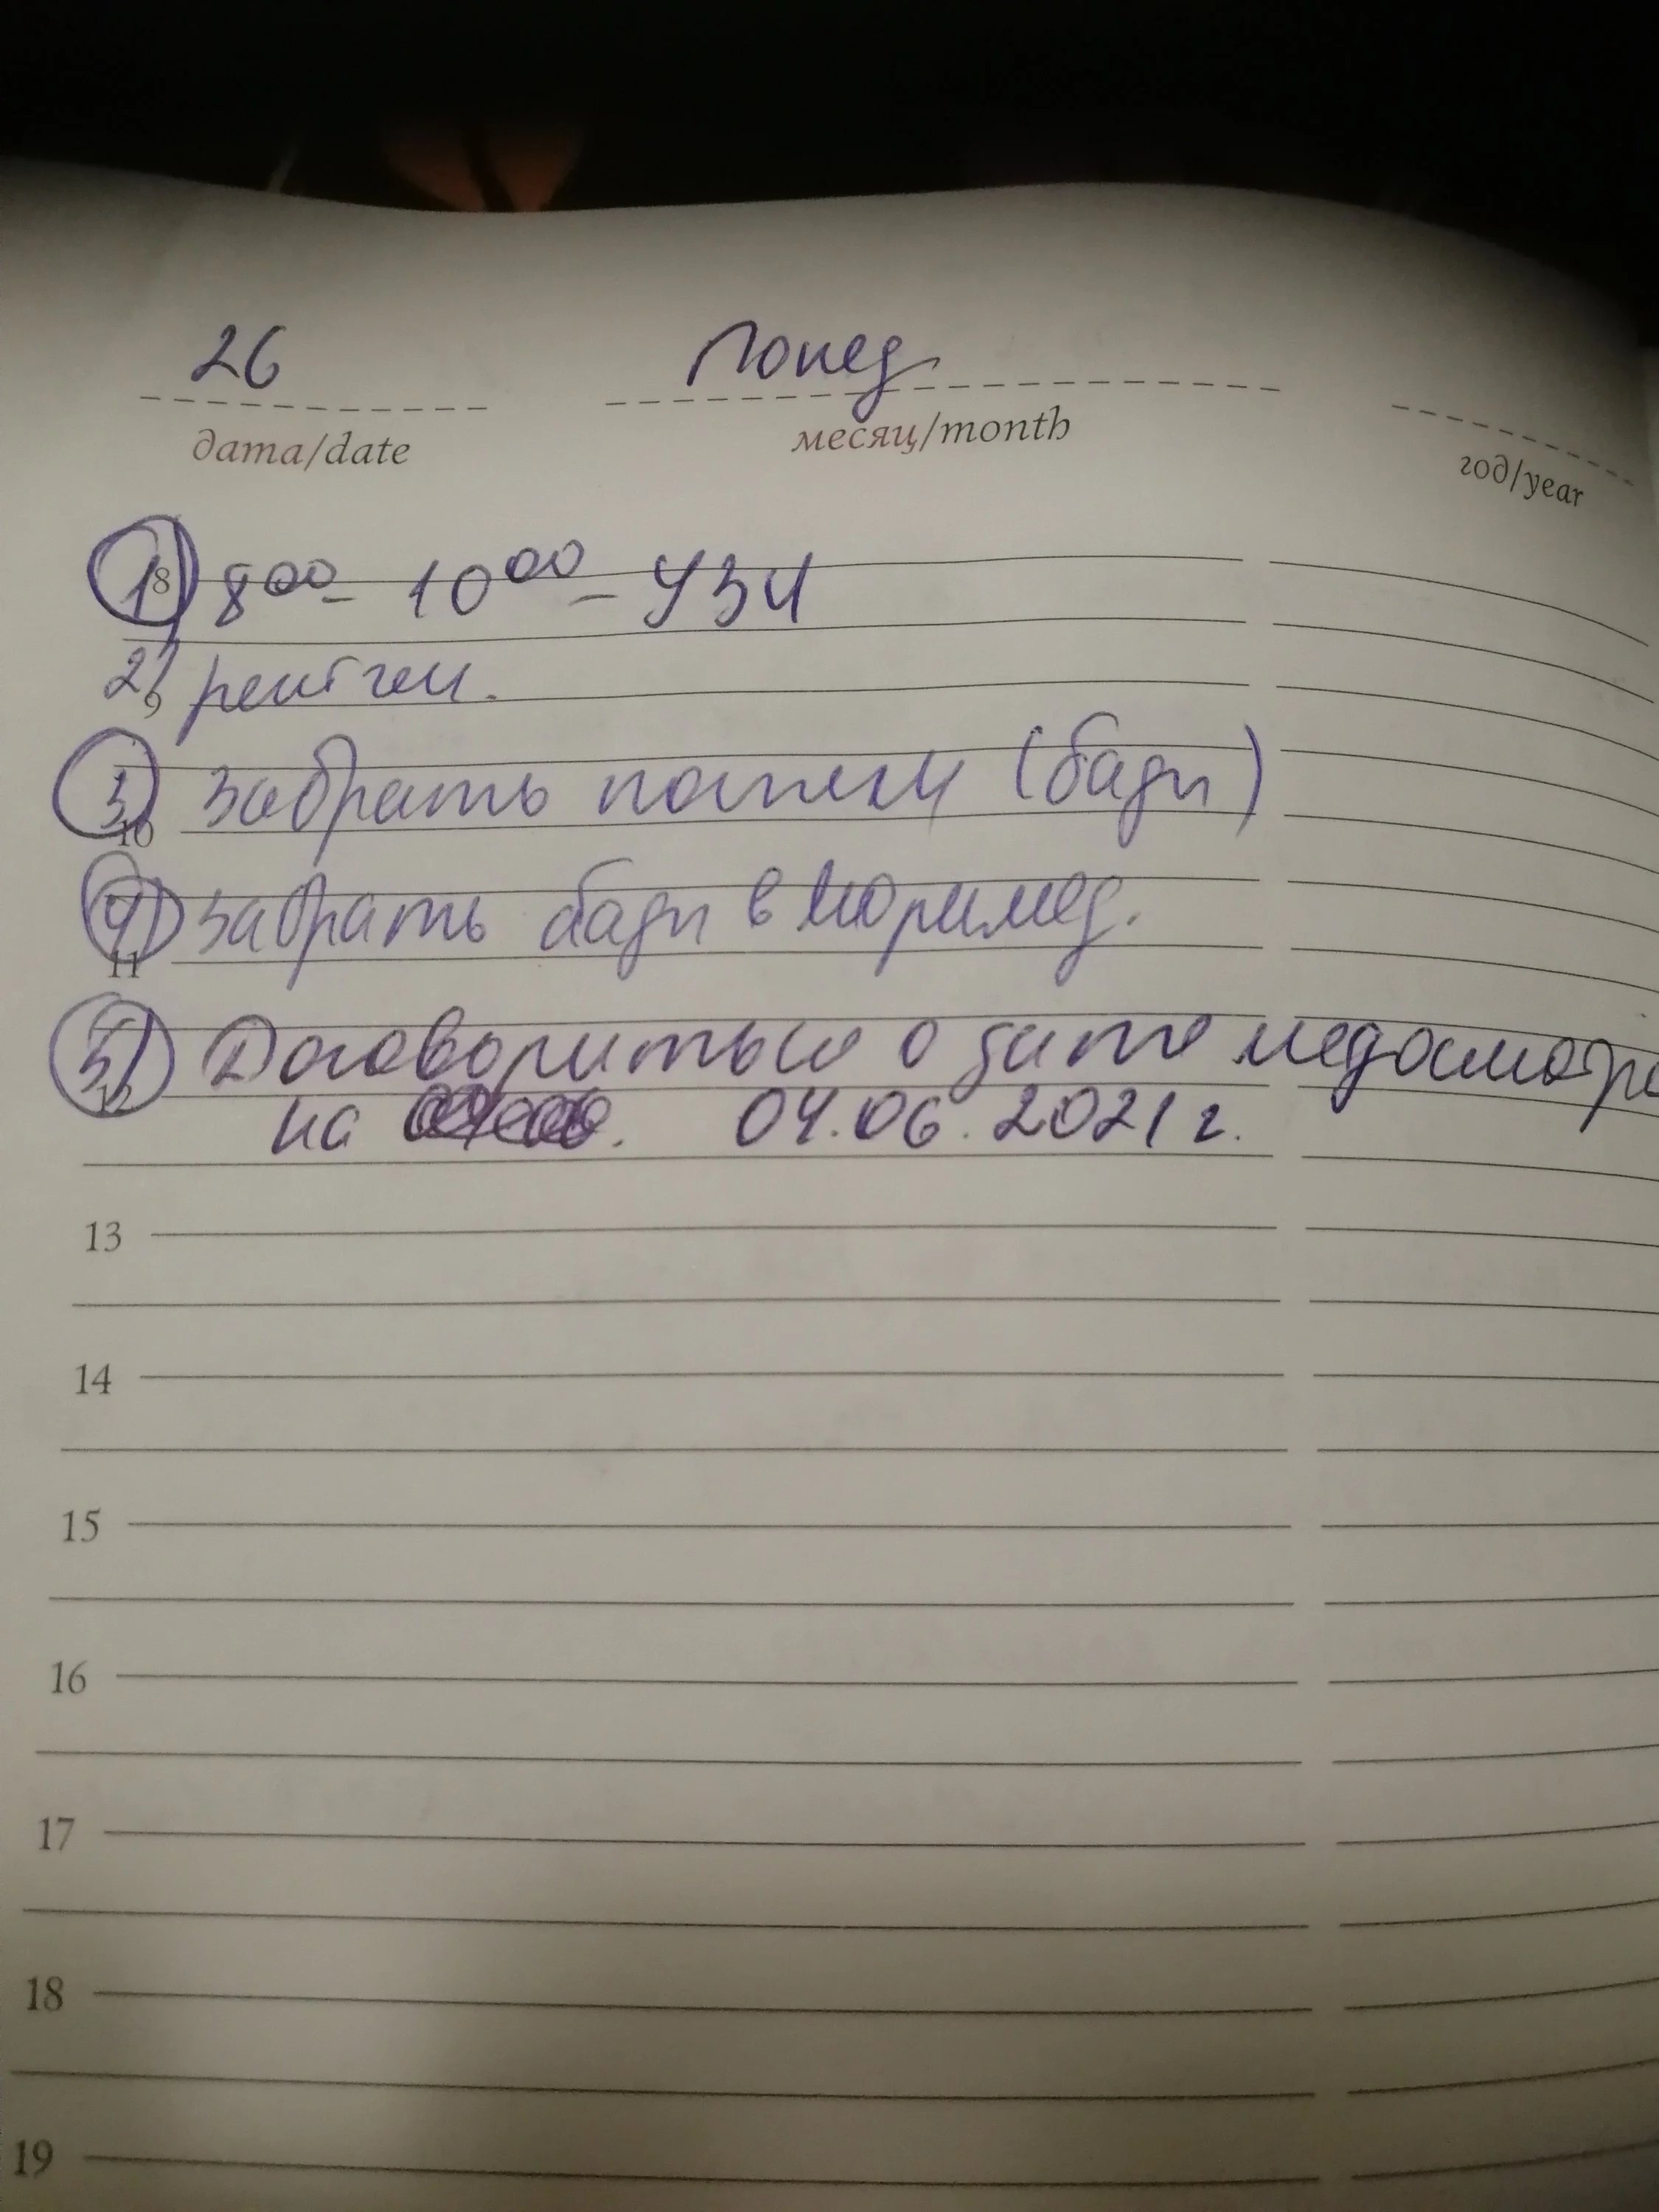 26 Понед
дата/date месяц/month год/year
1) 8 00 - 10 00 - УЗИ
8
2) рентген.
9
3) забрать (бади)
10
4) забрать бади в
11
5) Договориться о дате медосмотра
12
на 04.06.2021 г.
13
14
15
16
17
18
19